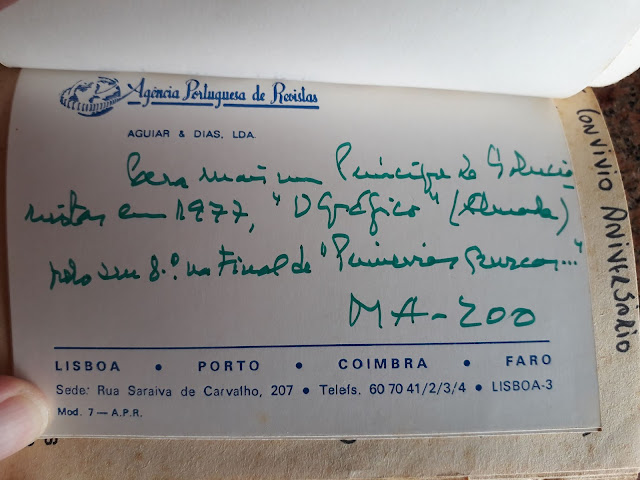 Agência Portuguesa de Revistas
AGUIAR & DIAS, LDA.
Para mais um Príncipe do Solucio
nistas em 1977, "O Gráfico" (Almada)
pelo seu 8.º na Final de "Primeiras Buscas..."
MA-ZOO
LISBOA • PORTO • COIMBRA • FARO
Sede: Rua Saraiva de Carvalho, 207 • Telefs. 60 70 41/2/3/4 • LISBOA-3
Mod. 7 — A.P.R.
CONVIVIO ANIVERSÁRIO